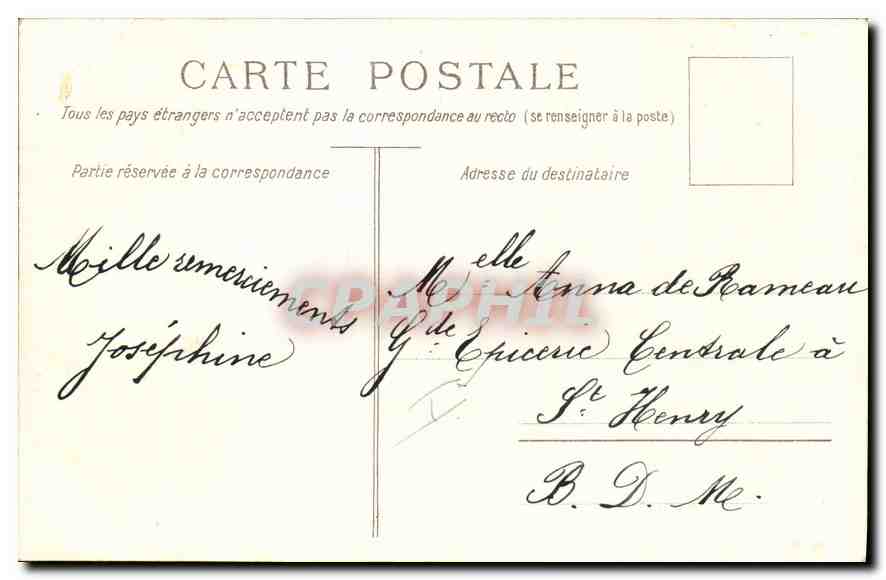 CARTE POSTALE
Tous les pays étrangers n'acceptent pas la correspondance au recto (se renseigner à la poste)
Partie réservée à la correspondance
Mille remerciements
Joséphine
Adresse du destinataire
Melle Anna de Rameau
Gde Epicerie Centrale à
St. Henry
B. D. M.
CPAPHIL